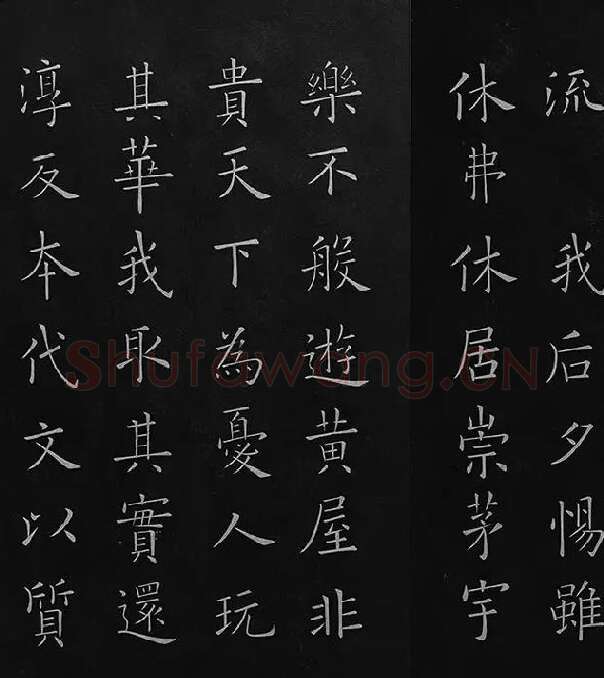 流 我后夕惕雖
休弗休居崇茅宇
樂不般遊黄屋非
貴天下為憂人玩
其華我取其實還
淳反本代文以質
Shufawang.CN